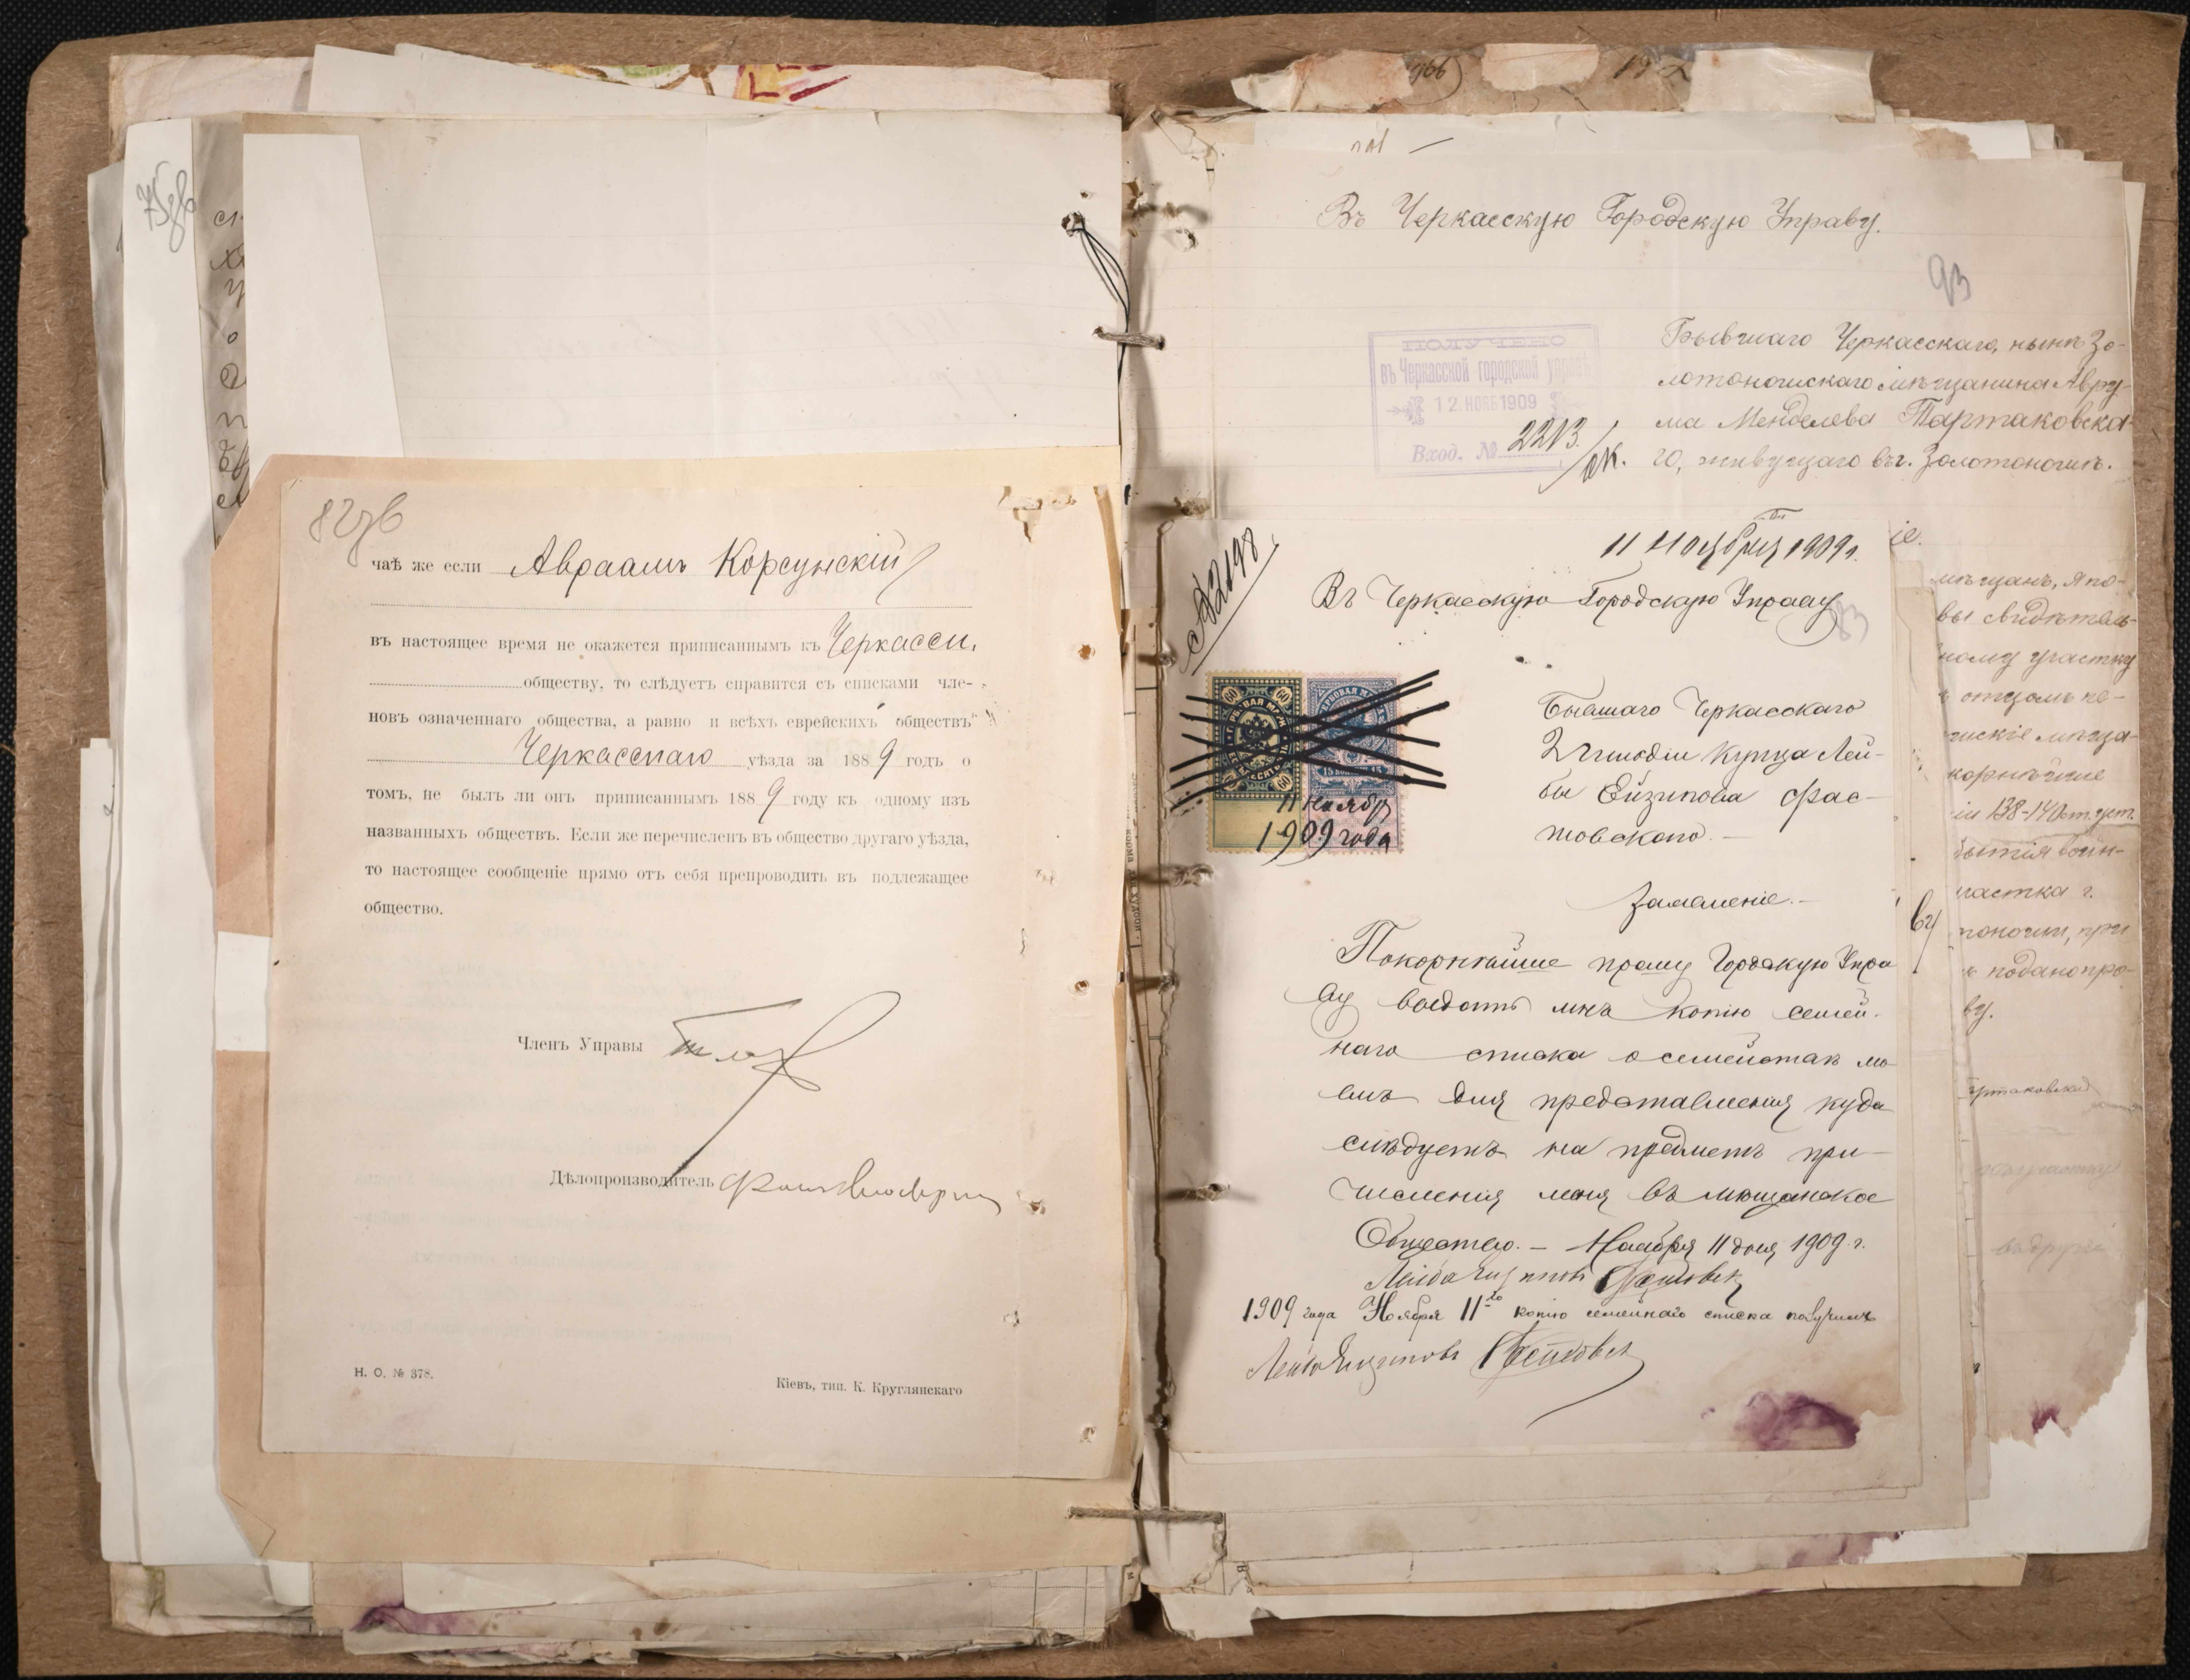 82 об
чаѣ же если Авраамъ Корсунскій
въ настоящее время не окажется приписаннымъ къ Черкасси.
обществу, то слѣдуетъ справится съ списками чле-
новъ означеннаго общества, а равно и всѣхъ еврейскихъ обществъ
Черкасскаго уѣзда за 1889 годъ о
томъ, не былъ ли онъ приписаннымъ 1889 году къ одному изъ
названныхъ обществъ. Если же перечисленъ въ общество другаго уѣзда,
то настоящее сообщеніе прямо отъ себя препроводить въ подлежащее
общество.
Членъ Управы
Дѣлопроизводитель
Н. О. № 378.
Кіевъ, тип. К. Круглянскаго
Въ Черкасскую Городскую Управу.
93
ПОЛУЧЕНО
въ Черкасской городской управѣ
12 НОЯБ 1909
Вход. № 2213
Бывшаго Черкасскаго, нынѣ Зо-
лотоношскаго мѣщанина Авру-
ма Менделева Тартаковска-
го, живущаго въ г. Золотоношѣ.
№ 2198
11 Ноября 1909 г.
Въ Черкасскую Городскую Управу
83
Бывшаго Черкасскаго
2 гильдіи купца Лей-
бы Ейзипова Фас-
товскаго.
60 60
15 КОПѢЕКЪ 15
11 ноября
1909 года
Заявленіе.
Покорнѣйше прошу Городскую Упра
ву выдать мнѣ копію семей-
наго списка о семействѣ мо
емъ для представленія куда
слѣдуетъ на предметъ при-
численія меня въ мѣщанское
Общество. – Ноября 11 дня 1909 г.
Лейба Фастовск
1909 года Ноября 11го копію семейнаго списка получилъ
Лейба Фастовск
іе.
мѣщанъ, я по-
вы свидѣтель-
ному участку
отцомъ пе-
шскіе мѣща-
корнѣйше
138-140 ст. уст.
бытія воин-
частка г.
тоноши, при
подано про-
ву.
артаковскій